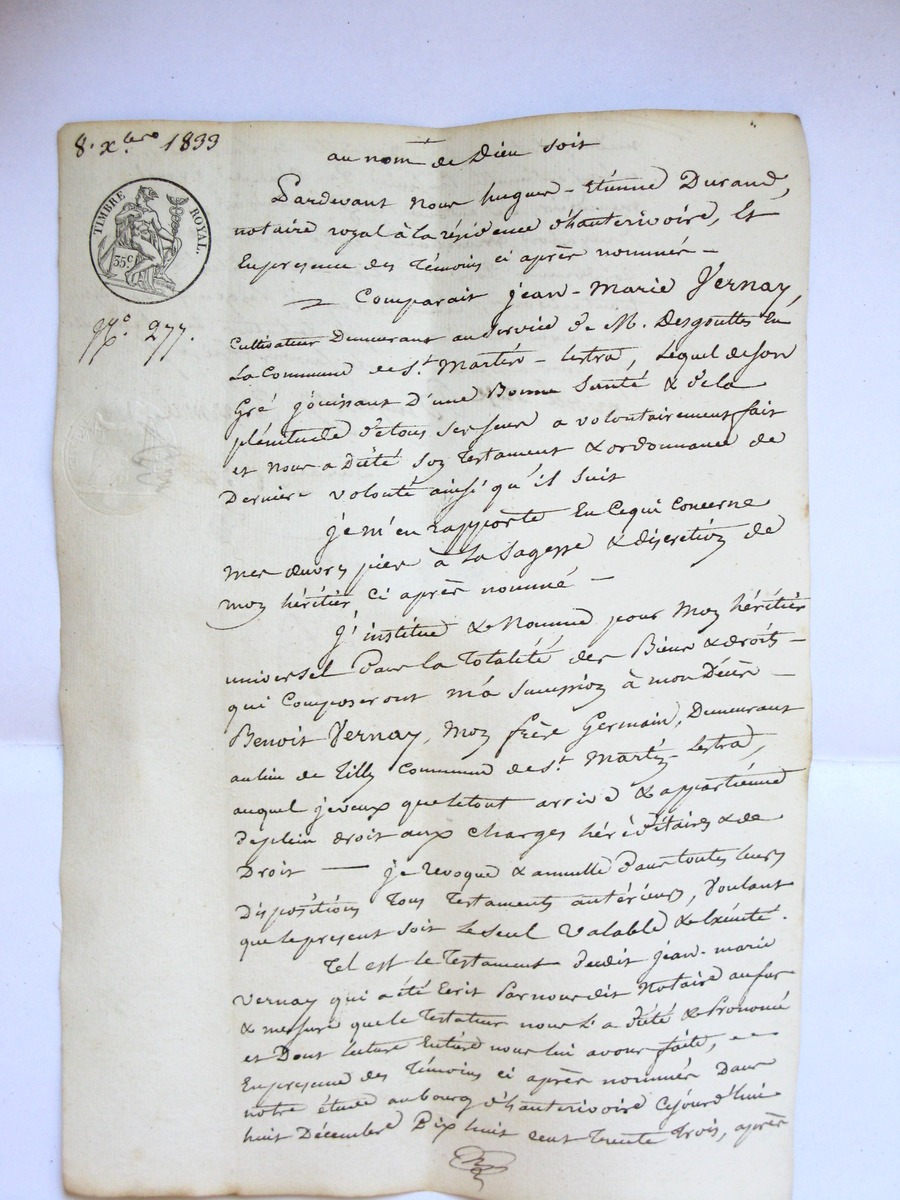 8. xbre 1833
au nom de Dieu soit
TIMBRE ROYAL.
35 c.
Pardevant nous hugues-Etienne Durand,
notaire royal à la résidence d'hauterivoire, Et
En presence des Témoins ci après nommés -
Comparait jean-Marie Vernay,
N.o 277.
Cultivateur Demeurant au service de M. Desgouttes En
La Commune de St. Martin-Lestra, Lequel de son
Gré jouissant D'une Bonne Santé & de la
plénitude de tous ses sens a volontairement fait
et nous a Dicté son Testament & ordonnance de
Derniere volonté ainsi qu'il suit
je m'en rapporte En Ce qui Concerne
mes œuvres pies à la Sagesse & discretion de
mon héritier Ci après nommé -
J'institue & Nomme pour Mon héritier
universel Dans la Totalité des Biens & droits -
qui Composeront ma Succession à mon Décès -
Benoit Vernay, Mon frère Germain, Demeurant
au lieu de Tilly Commune de St. Martin-Lestra,
auquel je veux que le tout arrive & appartienne
de plein droit aux Charges héréditaires & de
Droit — je revoque & annulle Dans toutes leurs
Dispositions Tous Testaments antérieurs, voulant
que le present soit le seul valable & Exécuté.
Tel est le Testament dudit jean-marie
Vernay qui a été Ecrit Par nous dit Notaire au fur
& mesure que le Testateur nous l'a dicté & Prononcé
et Dont lecture Entière nous lui avons faite, -
En presence des Témoins ci après nommés Dans
notre étude au bourg d'hauterivoire Cejourd'hui
huit Décembre Dix huit cent Trente trois, après